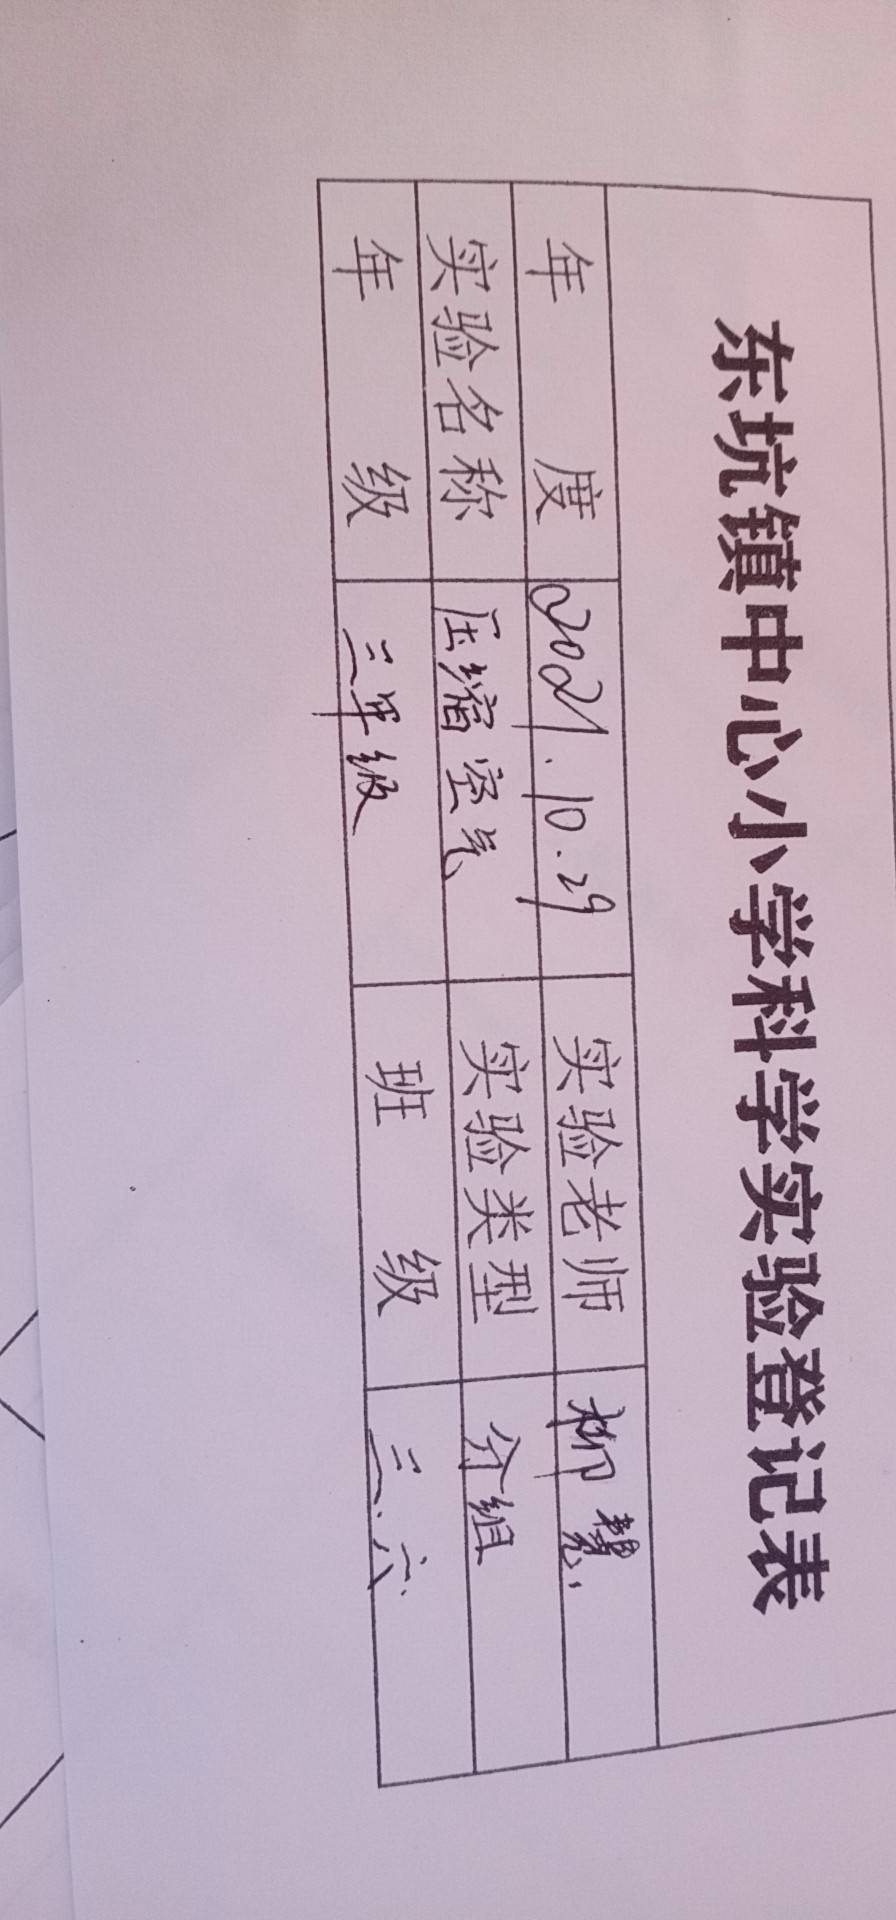 东坑镇中心小学科学实验登记表
年度 2021.10.29 实验老师 柳慧
实验名称 压缩空气 实验类型 分组
年级 三年级 班级 三.六